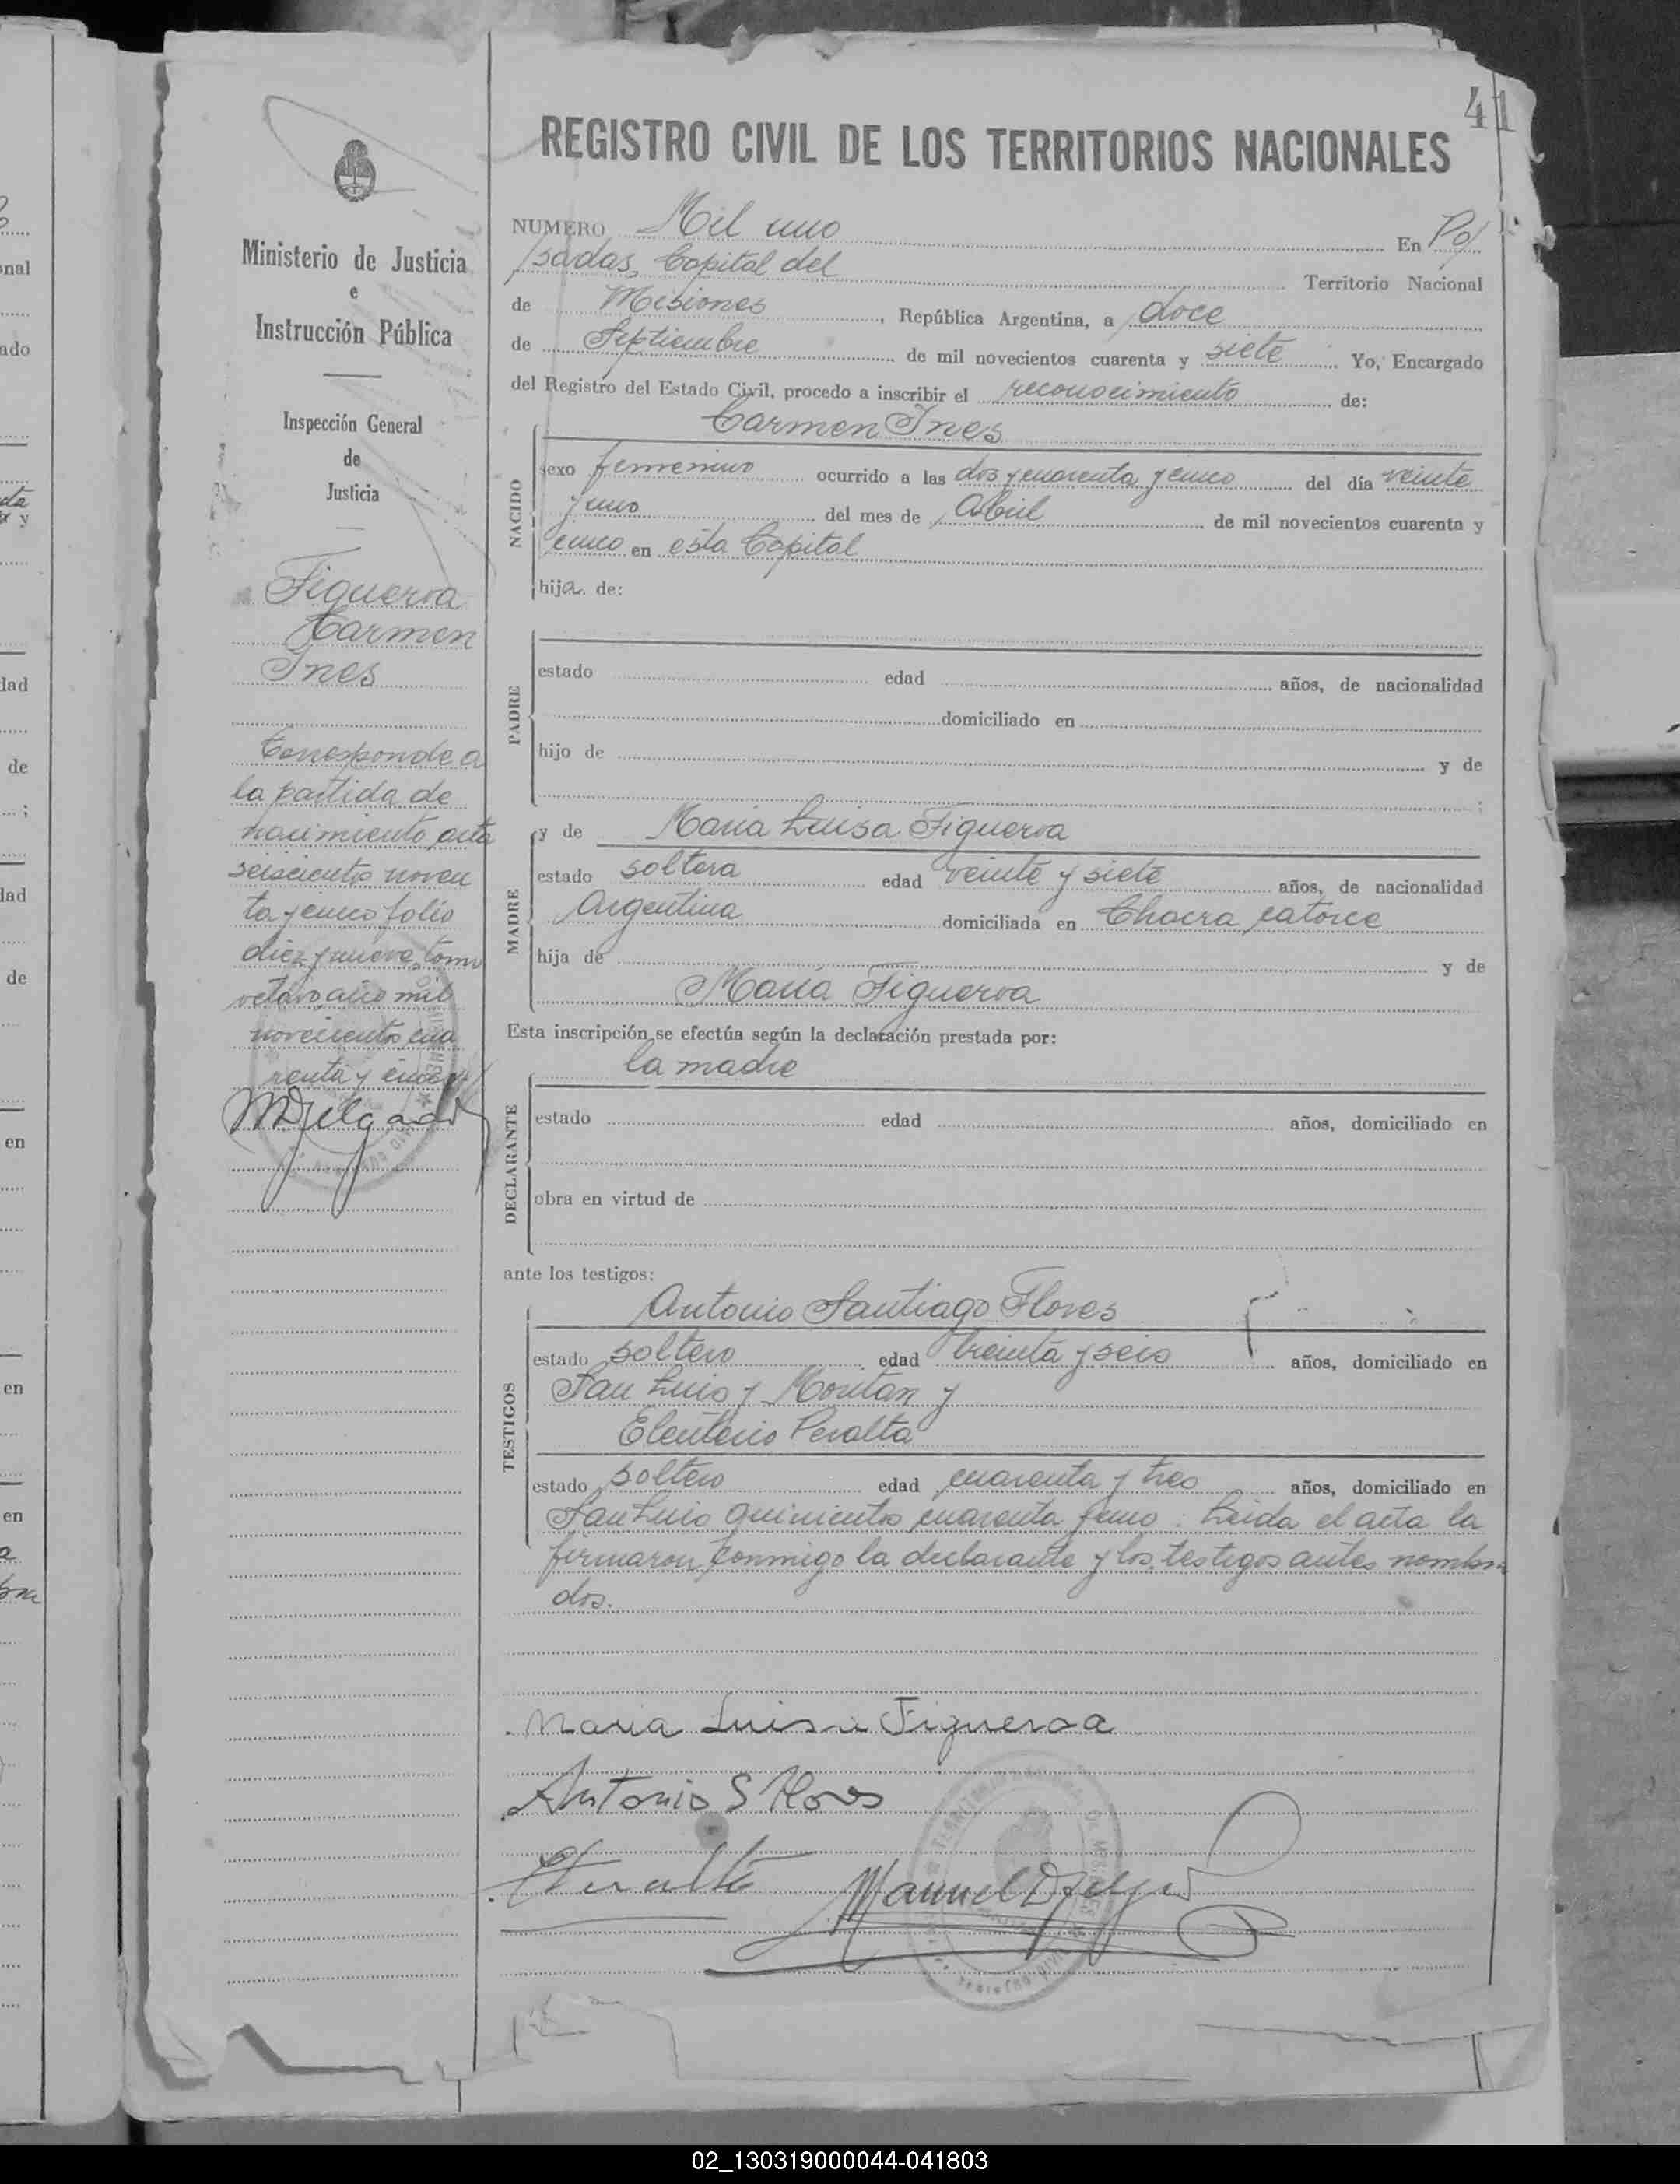 41
REGISTRO CIVIL DE LOS TERRITORIOS NACIONALES
Ministerio de Justicia
e
Instrucción Pública
Inspección General
de
Justicia
Figueroa
Carmen
Ines
Corresponde a
la partida de
nacimiento acta
seiscientos noven
ta y cinco folio
diez y nueve, tomo
octavo año mil
novecientos cua
renta y cinco
MDelgado
NUMERO Mil uno En Po/
/sadas, Capital del Territorio Nacional
de Misiones, República Argentina, a doce
de Septiembre de mil novecientos cuarenta y siete Yo, Encargado
del Registro del Estado Civil, procedo a inscribir el reconocimiento de:
Carmen Ines
NACIDO
sexo femenino ocurrido a las dos y cuarenta y cinco del día veinte
y uno del mes de Abril de mil novecientos cuarenta y
cinco en esta Capital
hija de:
PADRE
estado edad años, de nacionalidad
domiciliado en
hijo de y de
;
MADRE
y de Maria Luisa Figueroa
estado soltera edad veinte y siete años, de nacionalidad
Argentina domiciliada en Chacra catorce
hija de y de
María Figueroa
Esta inscripción se efectúa según la declaración prestada por:
la madre
DECLARANTE
estado edad años, domiciliado en
obra en virtud de
ante los testigos:
Antonio Santiago Flores
TESTIGOS
estado soltero edad treinta y seis años, domiciliado en
San Luis y Moritan y
Eleuterio Peralta
estado soltero edad cuarenta y tres años, domiciliado en
San Luis quinientos cuarenta y uno. Leida el acta la
firmaron conmigo la declarante y los testigos antes nombra
dos.
Maria Luisa Figueroa
Antonio S Flores
EPeralta
Manuel Delgado
02_130319000044-041803